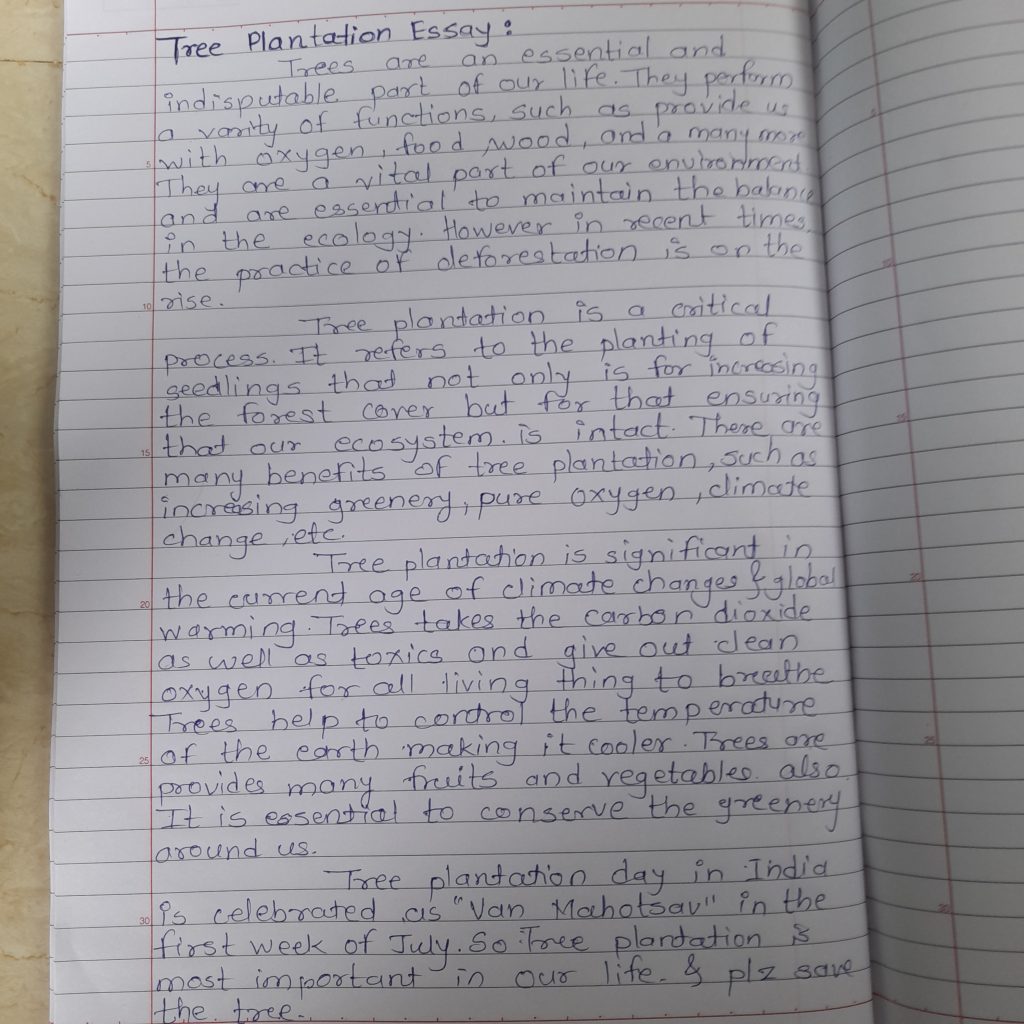 Tree Plantation Essay :
Trees are an essential and
indisputable part of our life. They perform
a varity of functions, such as provide us
with oxygen, food wood, and a many more
They are a vital part of our environment
and are essential to maintain the balance
in the ecology. However in recent times.
the practice of deforestation is on the
rise.
Tree plantation is a critical
process. It refers to the planting of
seedlings that not only is for increasing
the forest cover but for that ensuring
that our ecosystem. is intact. There are
many benefits of tree plantation, such as
increasing greenery, pure oxygen, climate
change, etc.
Tree plantation is significant in
the current age of climate changes & global
warming. Trees takes the carbon dioxide
as well as toxics and give out clean
oxygen for all living thing to breathe
Trees help to control the temperature
of the earth making it cooler. Trees are
provides many fruits and vegetables. also.
It is essential to conserve the greenery
around us.
Tree plantation day in India
is celebrated as "Van Mahotsav" in the
first week of July. So Tree plantation is
most important in our life. & plz save
the tree.